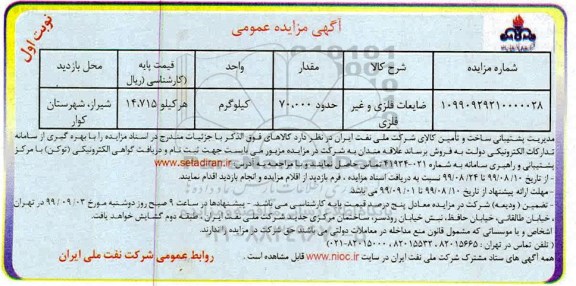 آگهی مزایده عمومی
نوبت اول
شماره مزایده
شرح کالا
مقدار
واحد
قیمت پایه (کارشناسی) (ریال)
محل بازدید
۱۰۹۹۰۹۲۹۲۱۰۰۰۰۰۲۸
ضایعات فلزی و غیر فلزی
حدود ۷۰،۰۰۰
کیلوگرم
هر کیلو ۱۴،۷۱۵
شیراز، شهرستان کوار
مدیریت پشتیبانی ساخت و تأمین کالای شرکت ملی نفت ایران در نظر دارد کالاهای فوق الذکر با جزئیات مندرج در اسناد مزایده را با بهره گیری از سامانه
تدارکات الکترونیکی دولت به فروش برساند علاقه مندان به شرکت در مزایده مزبور می بایست جهت ثبت نام و دریافت گواهی الکترونیکی (توکن) با مرکز
پشتیبانی و راهبری سامانه به شماره ۰۲۱-۴۱۹۳۴ تماس حاصل نمایند و با مراجعه به آدرس www.setadiran.ir
- از تاریخ ۹۹/۰۸/۱۰ تا ۹۹/۰۸/۲۴ نسبت به دریافت اسناد مزایده، فرم بازدید از اقلام مزایده و انجام بازدید اقدام نمایند.
- مهلت ارائه پیشنهاد از تاریخ ۹۹/۰۸/۱۰ تا ۹۹/۰۹/۰۱ می باشد
- تضمین (ودیعه) شرکت در مزایده معادل پنج درصد قیمت پایه کارشناسی می باشد. - پیشنهادها در ساعت ۹ صبح روز دوشنبه مورخ ۹۹/۰۹/۰۳ در تهران
، خیابان طالقانی، خیابان حافظ، نبش خیابان رودسر، ساختمان مرکزی جدید شرکت ملی نفت ایران، طبقه دوم گشایش خواهد یافت.
اشخاص و یا موسساتی که مشمول قانون منع مداخله در معاملات دولتی می باشند حق شرکت در مزایده را ندارند.
( تلفن تماس در تهران : ۸۲۰۱۵۶۶۵ ، ۸۲۰۱۵۵۳۲ ، ۸۲۰۱۵۰۰۰-۰۲۱)
همه آگهی های ستاد مشترک شرکت ملی نفت ایران در سایت www.nioc.ir قابل مشاهده است .
روابط عمومی شرکت نفت ملی ایران